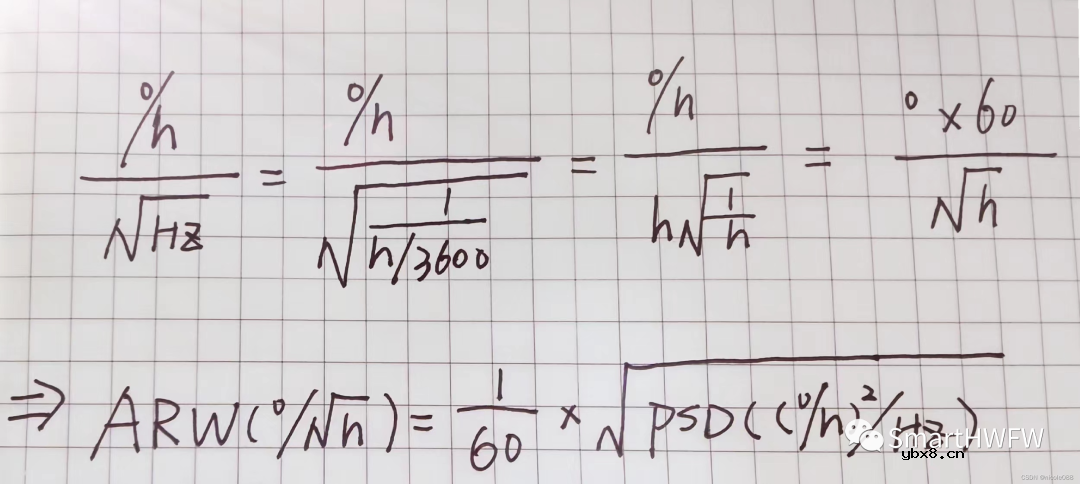 °/h / √Hz = °/h / √(1 / (h/3600)) = °/h / h√(1/h) = ° × 60 / √h
⇒ ARW(°/√h) = 1/60 × √PSD((°/h)²/Hz)
SmartHWFW
ybx8.cn